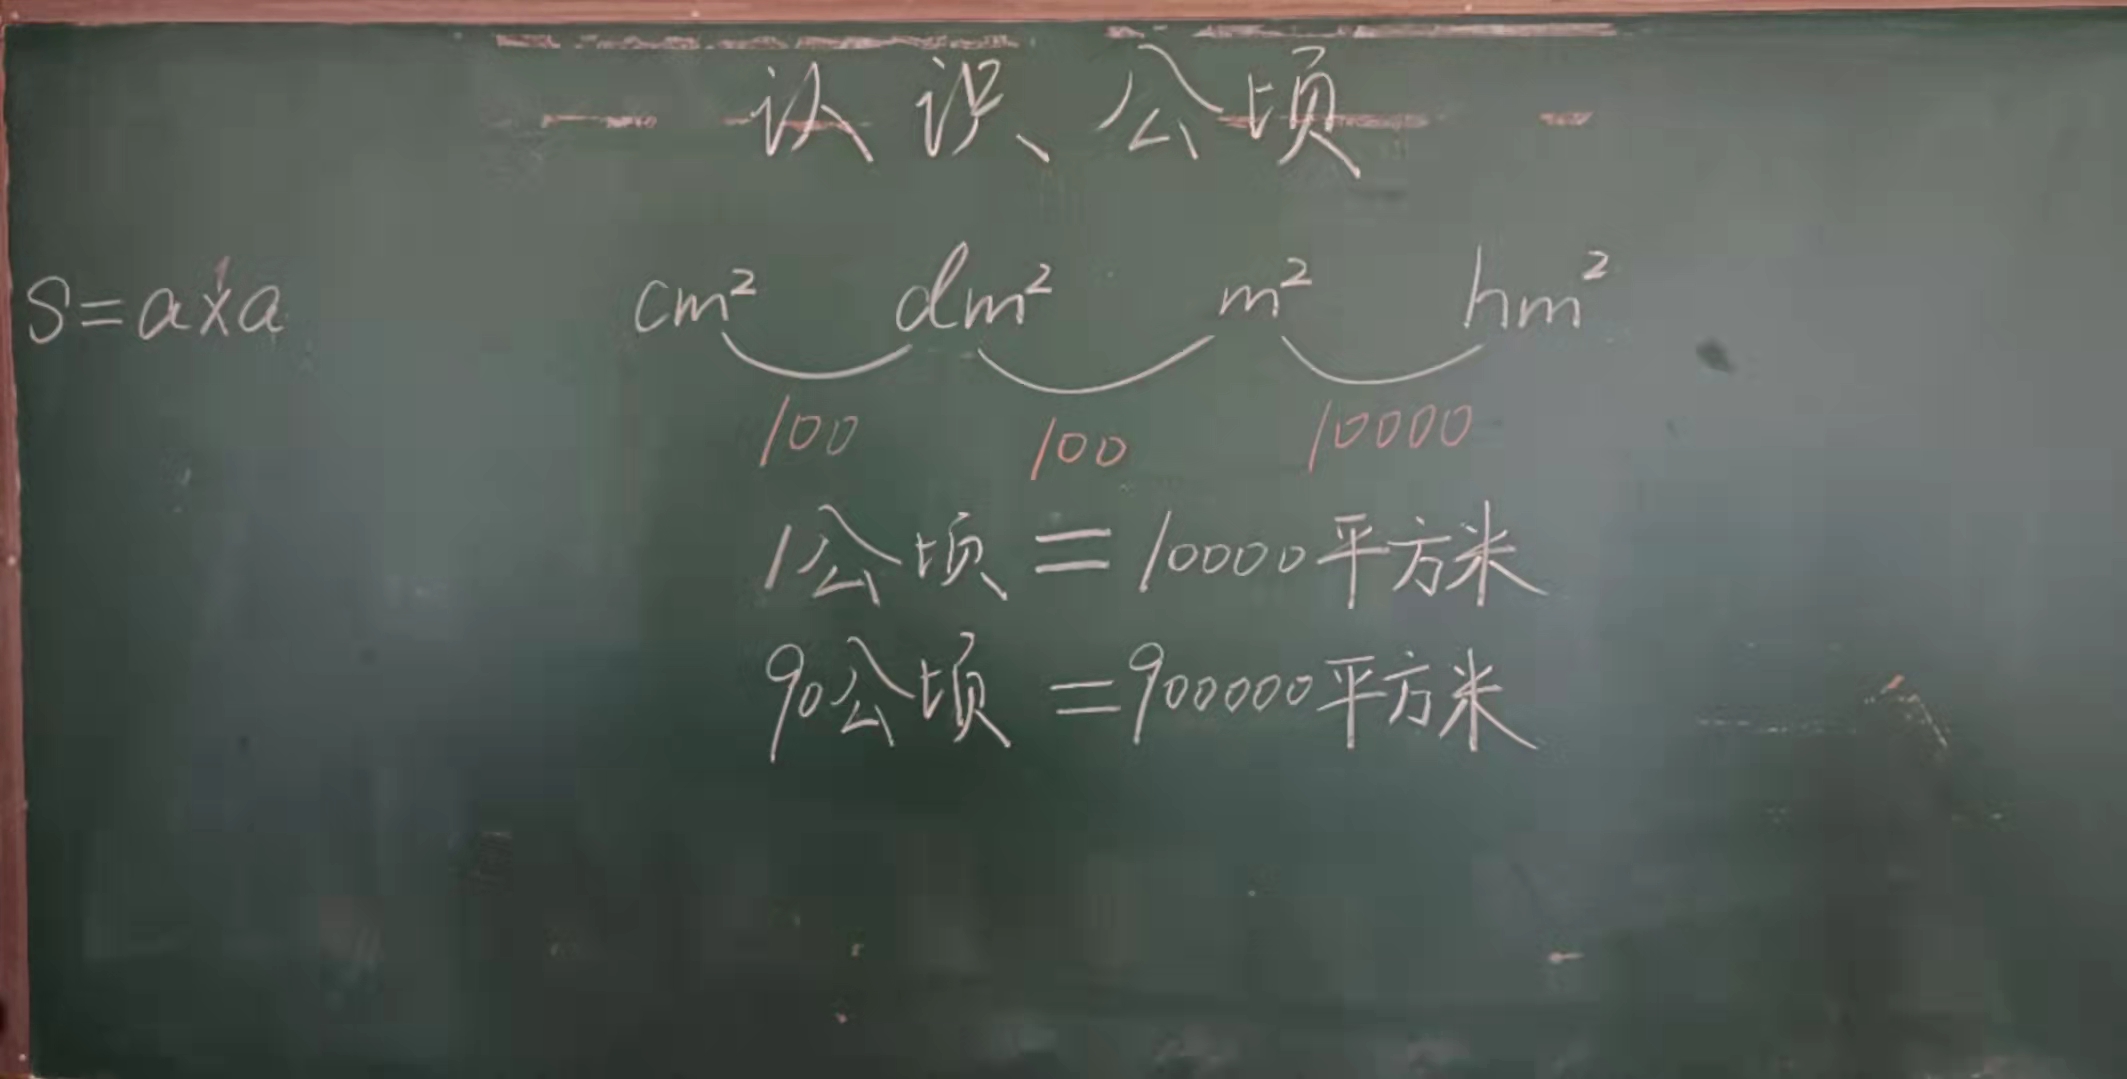 认识公顷
S=a×a
cm² dm² m² hm²
100 100 10000
1公顷=10000平方米
90公顷=900000平方米